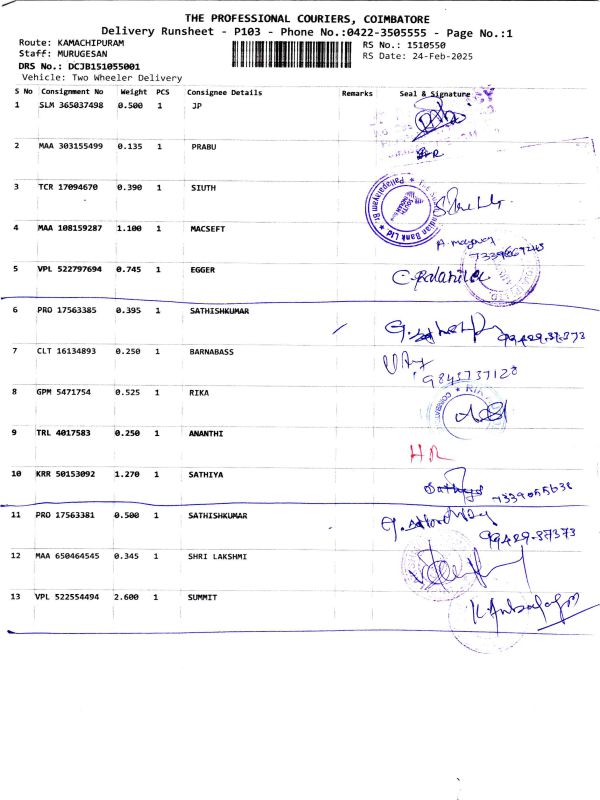 THE PROFESSIONAL COURIERS, COIMBATORE
Delivery Runsheet - P103 - Phone No.:0422-3505555 - Page No.:1
Route: KAMACHIPURAM RS No.: 1510550
Staff: MURUGESAN RS Date: 24-Feb-2025
DRS No.: DCJB151055001
Vehicle: Two Wheeler Delivery
S No Consignment No Weight PCS Consignee Details Remarks Seal & Signature
1 SLM 365037498 0.500 1 JP
2 MAA 303155499 0.135 1 PRABU
3 TCR 17094670 0.390 1 SIUTH
4 MAA 108159287 1.100 1 MACSEFT
5 VPL 522797694 0.745 1 EGGER
6 PRO 17563385 0.395 1 SATHISHKUMAR
7 CLT 16134893 0.250 1 BARNABASS
9843737128
8 GPM 5471754 0.525 1 RIKA
9 TRL 4017583 0.250 1 ANANTHI
HR
10 KRR 50153092 1.270 1 SATHIYA
11 PRO 17563381 0.500 1 SATHISHKUMAR
99429-37373
12 MAA 650464545 0.345 1 SHRI LAKSHMI
13 VPL 522554494 2.600 1 SUMMIT